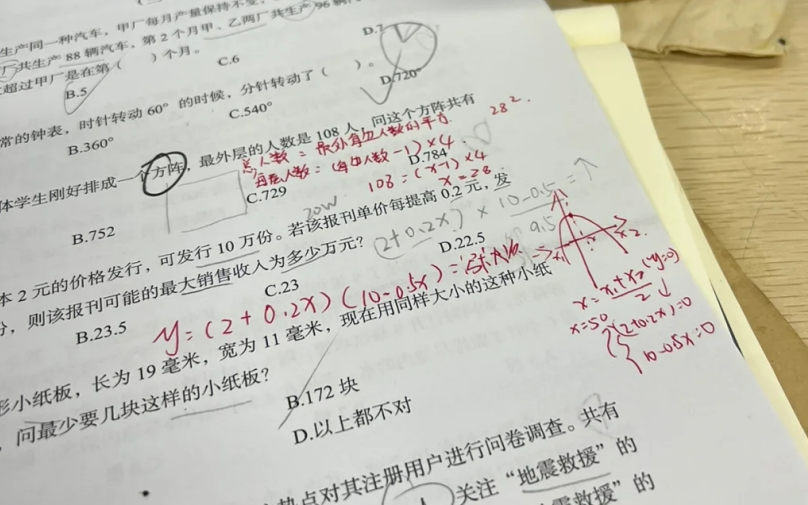 生产同一种汽车，甲厂每月产量保持不变，
厂共生产 88 辆汽车，第 2 个月甲、乙两厂共生产 96 辆
超过甲厂是在第（ ）个月。
B.5
C.6
D.7
常的钟表，时针转动 60° 的时候，分针转动了（ ）。
B.360°
C.540°
D.720°
体学生刚好排成一个方阵，最外层的人数是 108 人，问这个方阵共有
总人数 = 最外每边人数的平方
28²
每层人数 = (每边人数 - 1) × 4
108 = (x-1) × 4
x = 28
B.752
C.729
D.784
本 2 元的价格发行，可发行 10 万份。若该报刊单价每提高 0.2 元，发
份，则该报刊可能的最大销售收入为多少万元？
(2+0.2x) × 10-0.5
9.5
B.23.5
C.23
D.22.5
y=(2+0.2x)(10-0.5x)=
x = x₁+x₂ / 2 (y=0)
x=50
(2+0.2x)=0
10-0.5x=0
形小纸板，长为 19 毫米，宽为 11 毫米，现在用同样大小的这种小纸
，问最少要几块这样的小纸板？
B.172 块
D.以上都不对
热点对其注册用户进行问卷调查。共有
人关注“地震救援”的
震救援”的